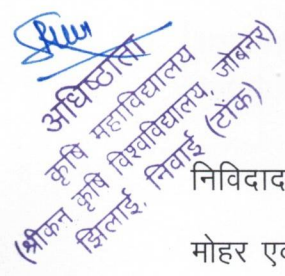 अधिष्ठाता
कृषि महाविद्यालय
(श्रीकन कृषि विश्वविद्यालय, जोबनेर)
झिलाई, निवाई (टोंक)
निविदाद
मोहर एव